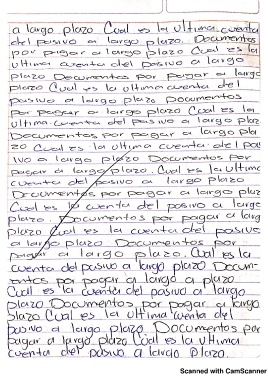 a largo plazo Cual es la ultima cuenta
del pasivo a largo plazo. Documentos
por pagar a largo plazo Cual es la
ultima cuenta del pasivo a largo
plazo Documentos por pagar a largo
plazo Cual es la ultima cuenta del
pasivo a largo plazo Documentos
por pagar a largo plazo Cual es la
ultima cuenta del pasivo a largo plaz
Documentos por pagar a largo pla
zo Cual es la ultima cuenta del pas
ivo a largo plazo Documentos por
pagar a largo plazo. Cual es la ultima
cuenta del pasivo a largo plazo
Documentos por pagar a largo plaz
Cual es la cuenta del pasivo a largo
plazo. Documentos por pagar a larg
plazo Cual es la cuenta del pasivo
a largo plazo Documentos por
pagar a largo plazo. Cual es la
cuenta del pasivo a largo plazo Docum-
entos por pagar a largo a plazo
Cual es la cuenta del pasivo a largo
plazo Documentos por pagar a largo
plazo Cual es la ultima cuenta del
pasivo a largo plazo Documentos por
pagar a largo plazo Cual es la ultima
cuenta del pasivo a largo plazo.
Scanned with CamScanner